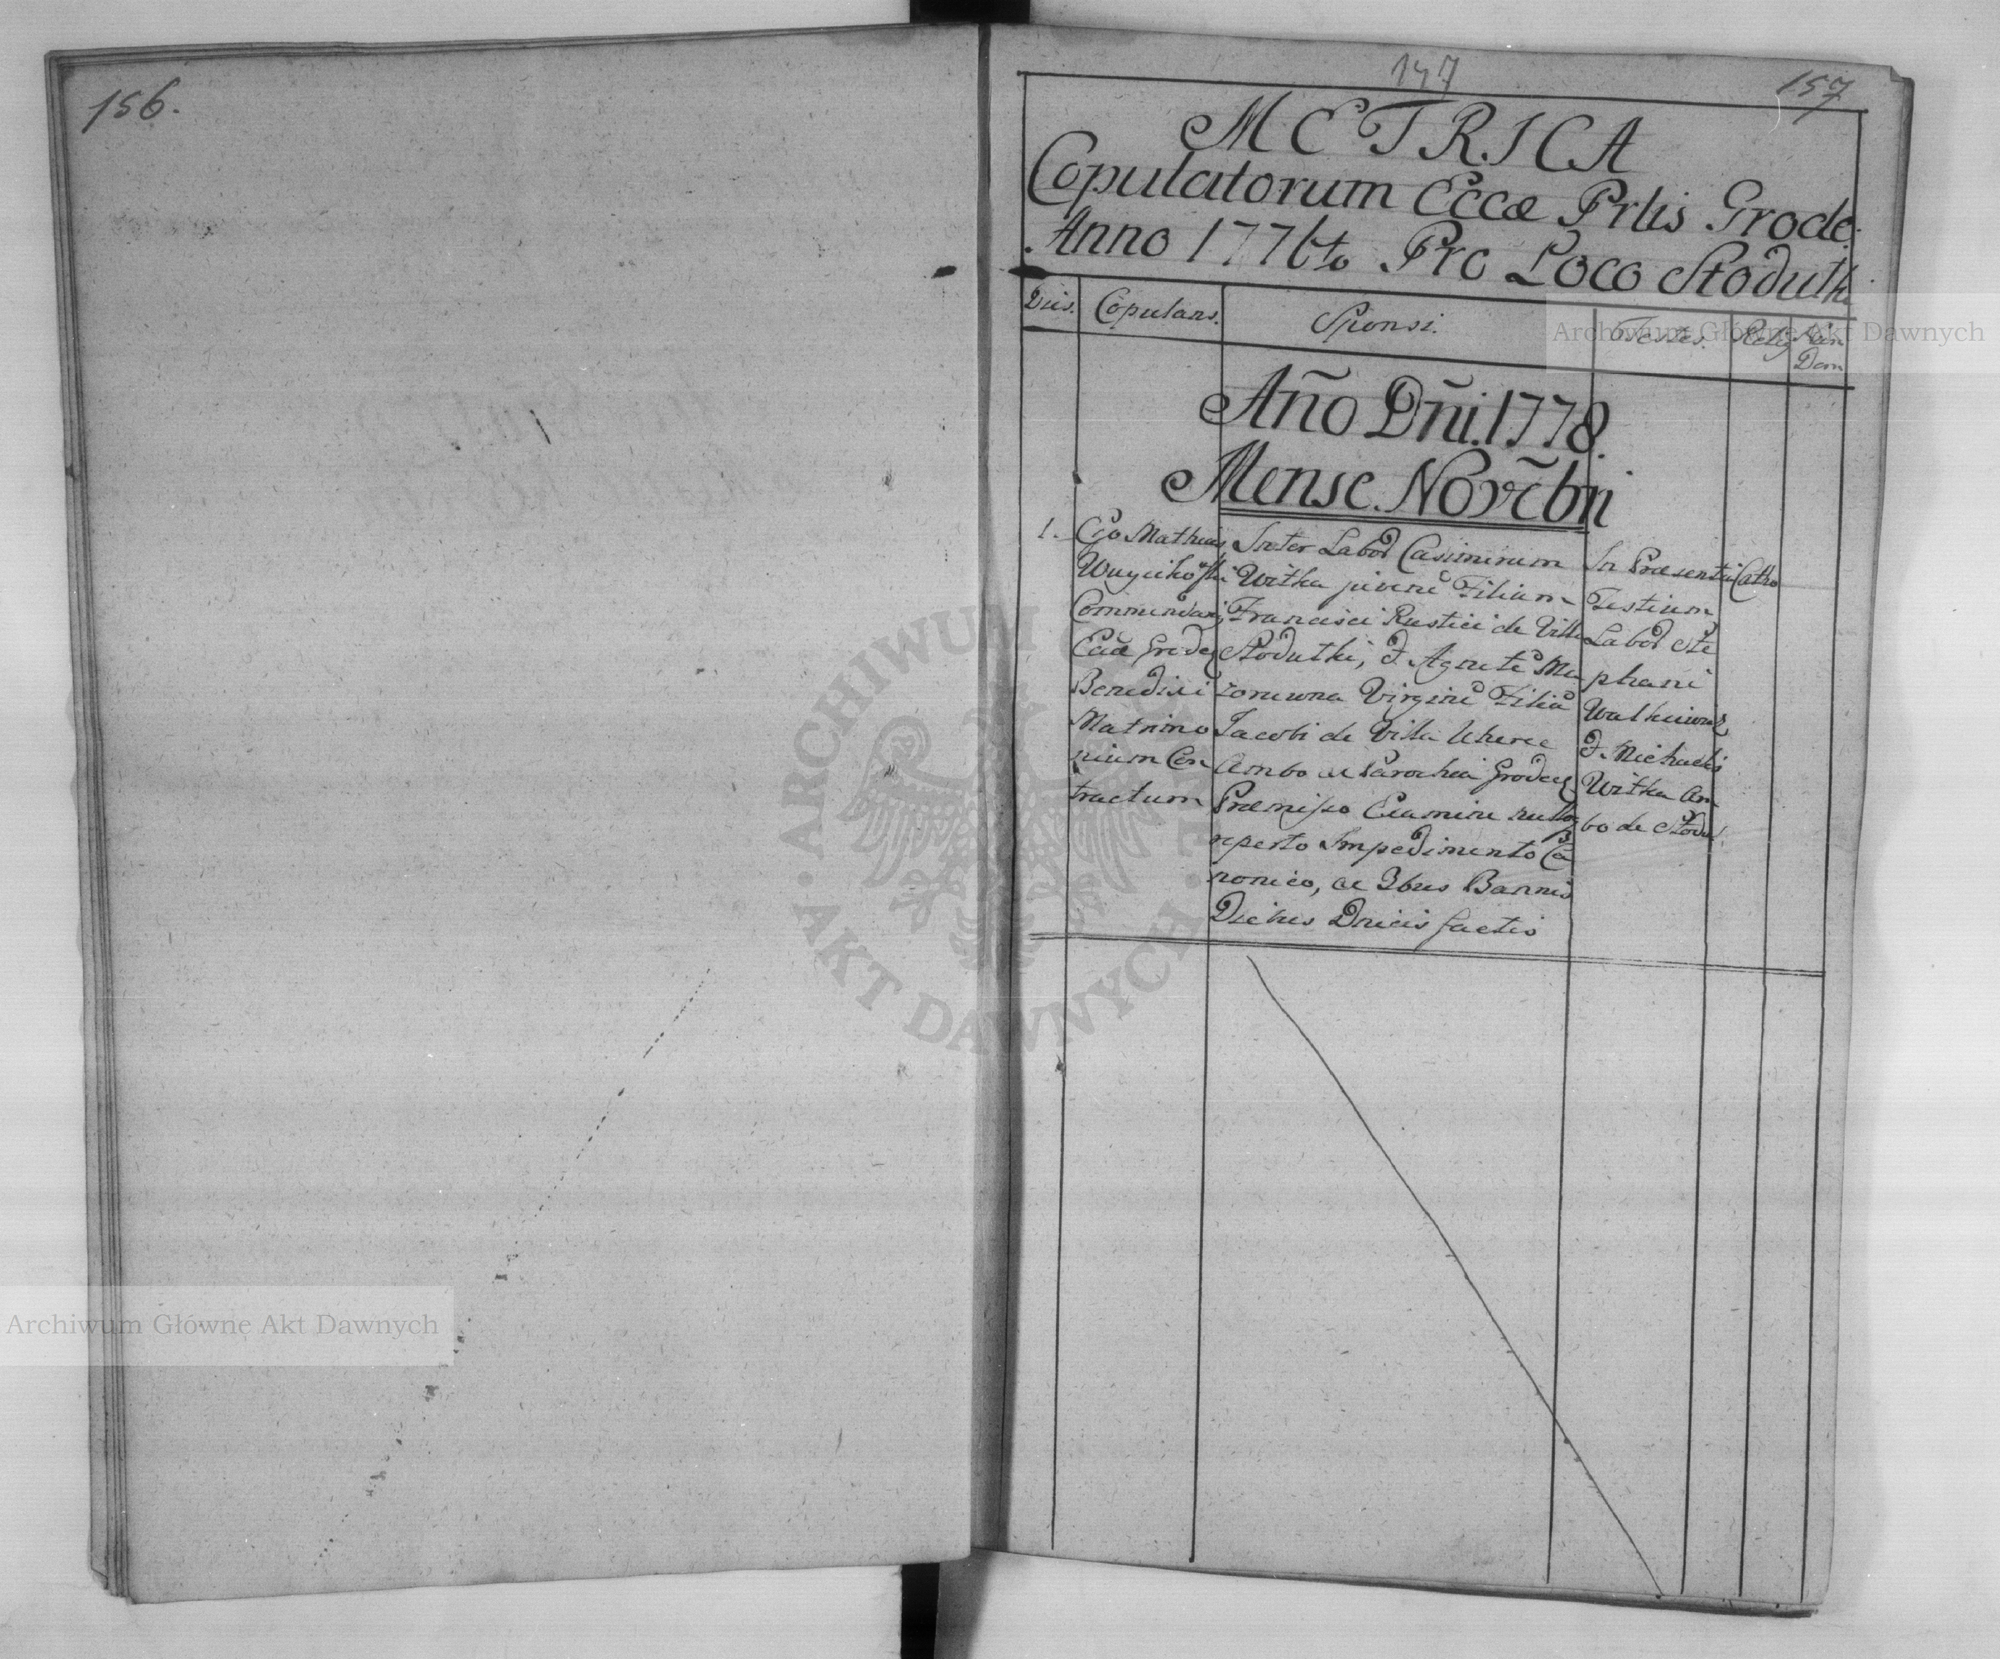 156.
147
157
METRICA
Copulatorum Eccæ Prlis Grode:
Anno 1776to Pro Loco Stodutki
Dies. Copulans. Sponsi. Testes. Relig Nũ Dom
Año Dñi. 1778.
Mense Novẽbri
1.
Ego Mathias
Commendari
Benedixi
Matrimo
nium Con
tractum
Inter Labor Casimirum
Witka juvenẽ Filium
Francisci Rustici de Villa
Stodutki, & Agnetẽ Ma
zorowna Virginẽ Filiã
Jacobi de Villa Uherce
Ambo ac Parochia Grodec
Præmisso Examine nulloq
reperto Impedimento Ca
nonico, ac 3bus Bannis
Diebus Dnicis factis
In Præsentia
Testium
Labor Ste
phani
& Michaelis
Witka Am
bo de Stodut:
Catho
Archiwum Główne Akt Dawnych
ARCHIWUM
AKT DAWNYCH
Archiwum Główne Akt Dawnych